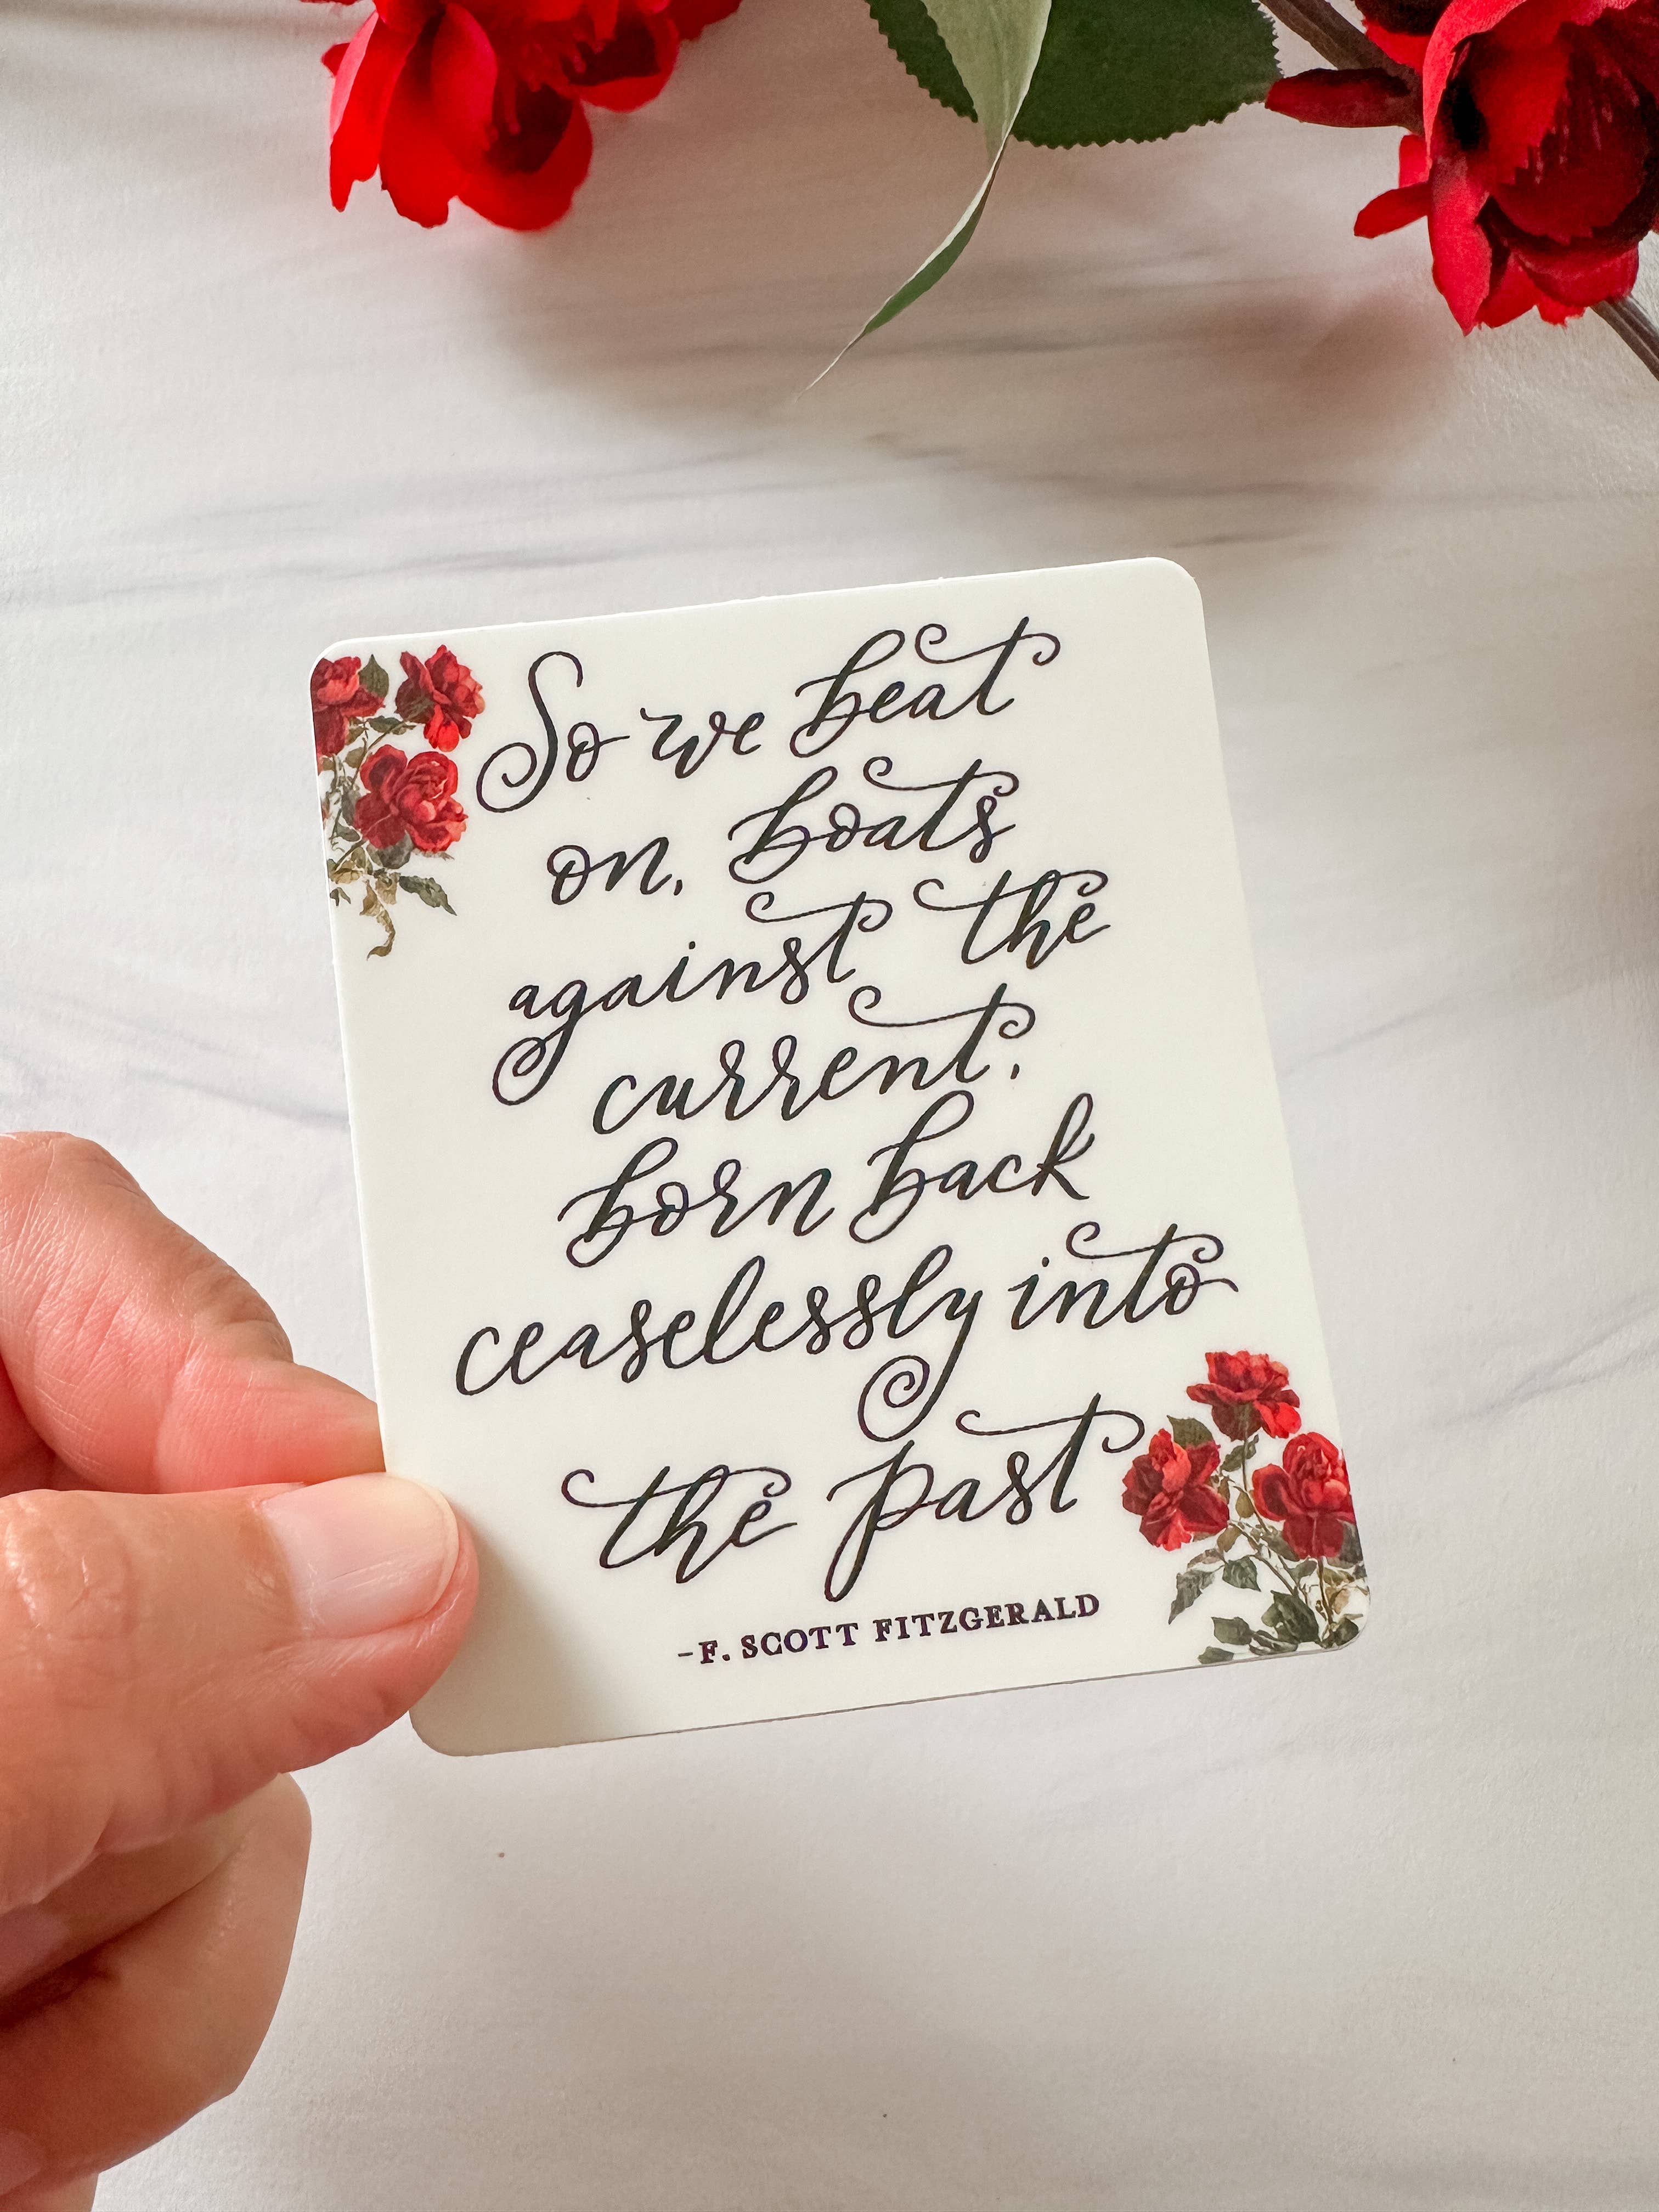 So we beat
on, boats
against the
current,
born back
ceaselessly into
the past
-F. SCOTT FITZGERALD